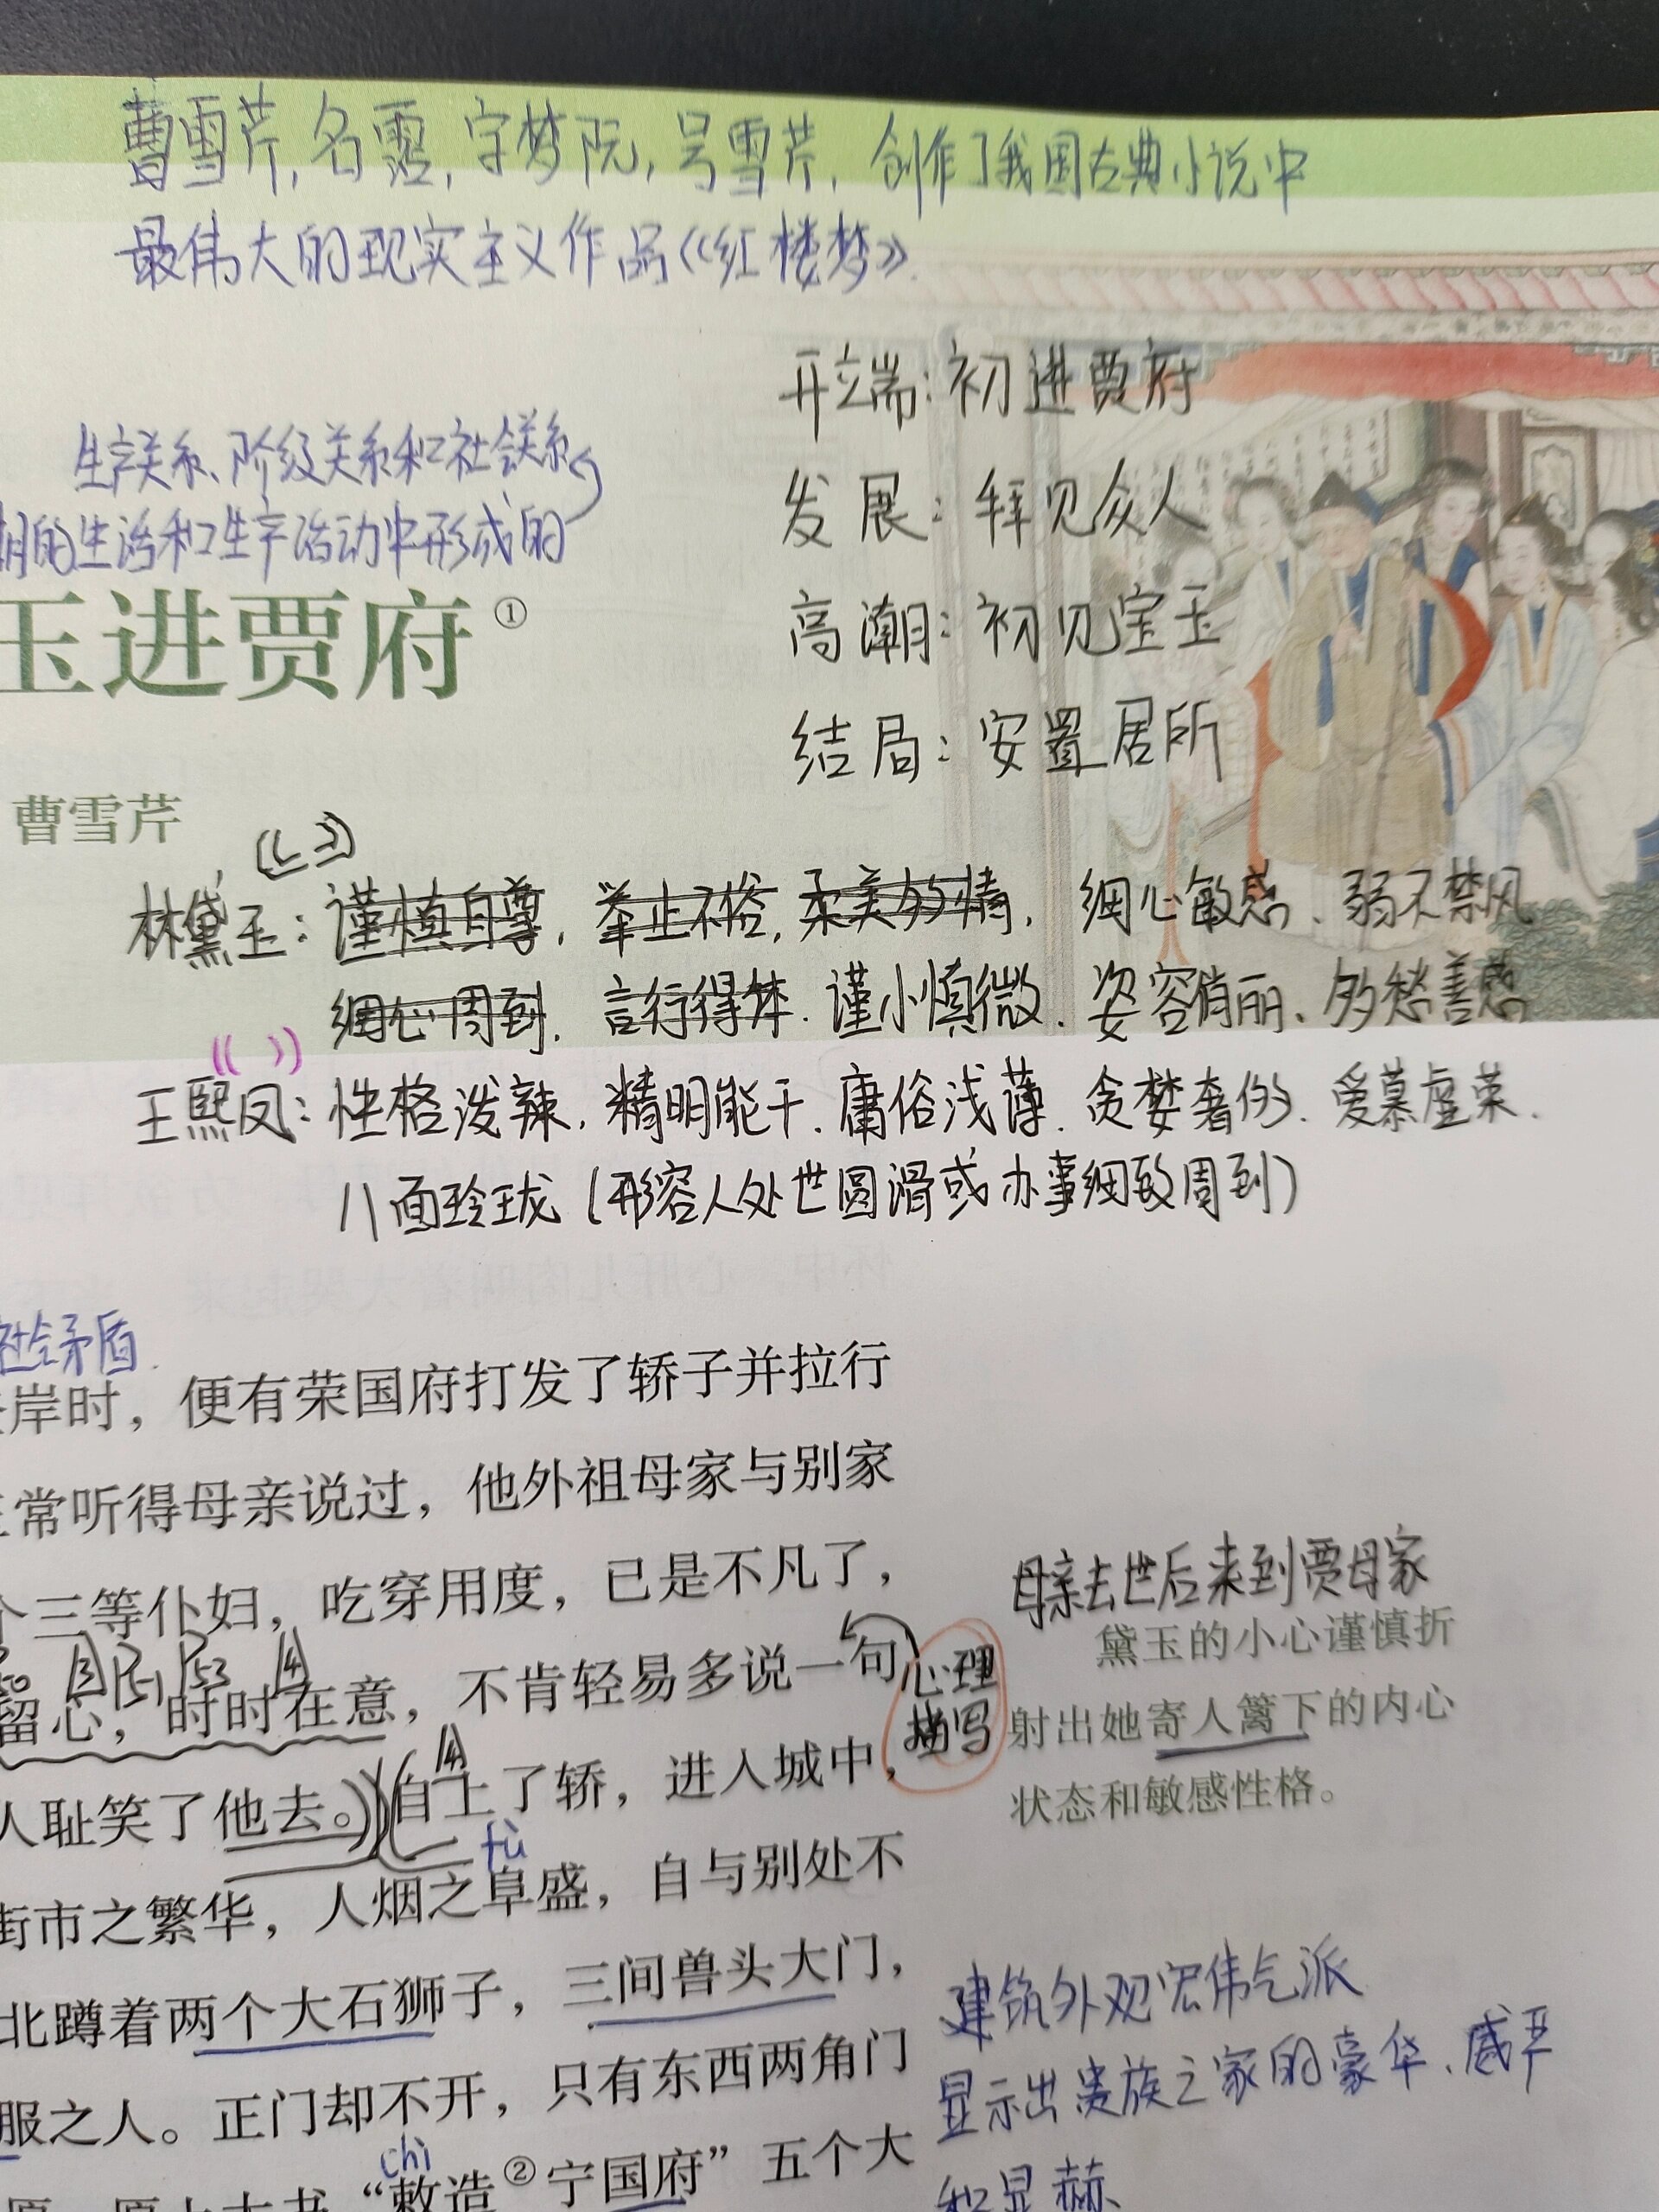 曹雪芹,名霑,字梦阮,号雪芹,创作了我国古典小说中
最伟大的现实主义作品《红楼梦》.
开端:初进贾府
发展:拜见众人
高潮:初见宝玉
结局:安置居所
生产关系、阶级关系和社会关系
期的生活和生产活动中形成的
玉进贾府①
曹雪芹
林黛玉:谨慎自尊,举止不俗,柔美多情,细心敏感、弱不禁风
细心周到.言行得体.谨小慎微.姿容俏丽、多愁善感
王熙凤:性格泼辣,精明能干.庸俗浅薄.贪婪奢侈.爱慕虚荣.
八面玲珑(形容人处世圆滑或办事细致周到)
社会矛盾.
岸时，便有荣国府打发了轿子并拉行
常听得母亲说过，他外祖母家与别家
个三等仆妇，吃穿用度，已是不凡了，
留心，时时在意，不肯轻易多说一句
心理
描写
人耻笑了他去。自上了轿，进入城中，
fù
街市之繁华，人烟之阜盛，自与别处不
北蹲着两个大石狮子，三间兽头大门，
服之人。正门却不开，只有东西两角门
chì
“敕造②宁国府”五个大
母亲去世后来到贾母家
黛玉的小心谨慎折
射出她寄人篱下的内心
状态和敏感性格。
建筑外观宏伟气派
显示出贵族之家的豪华、威严
和显赫